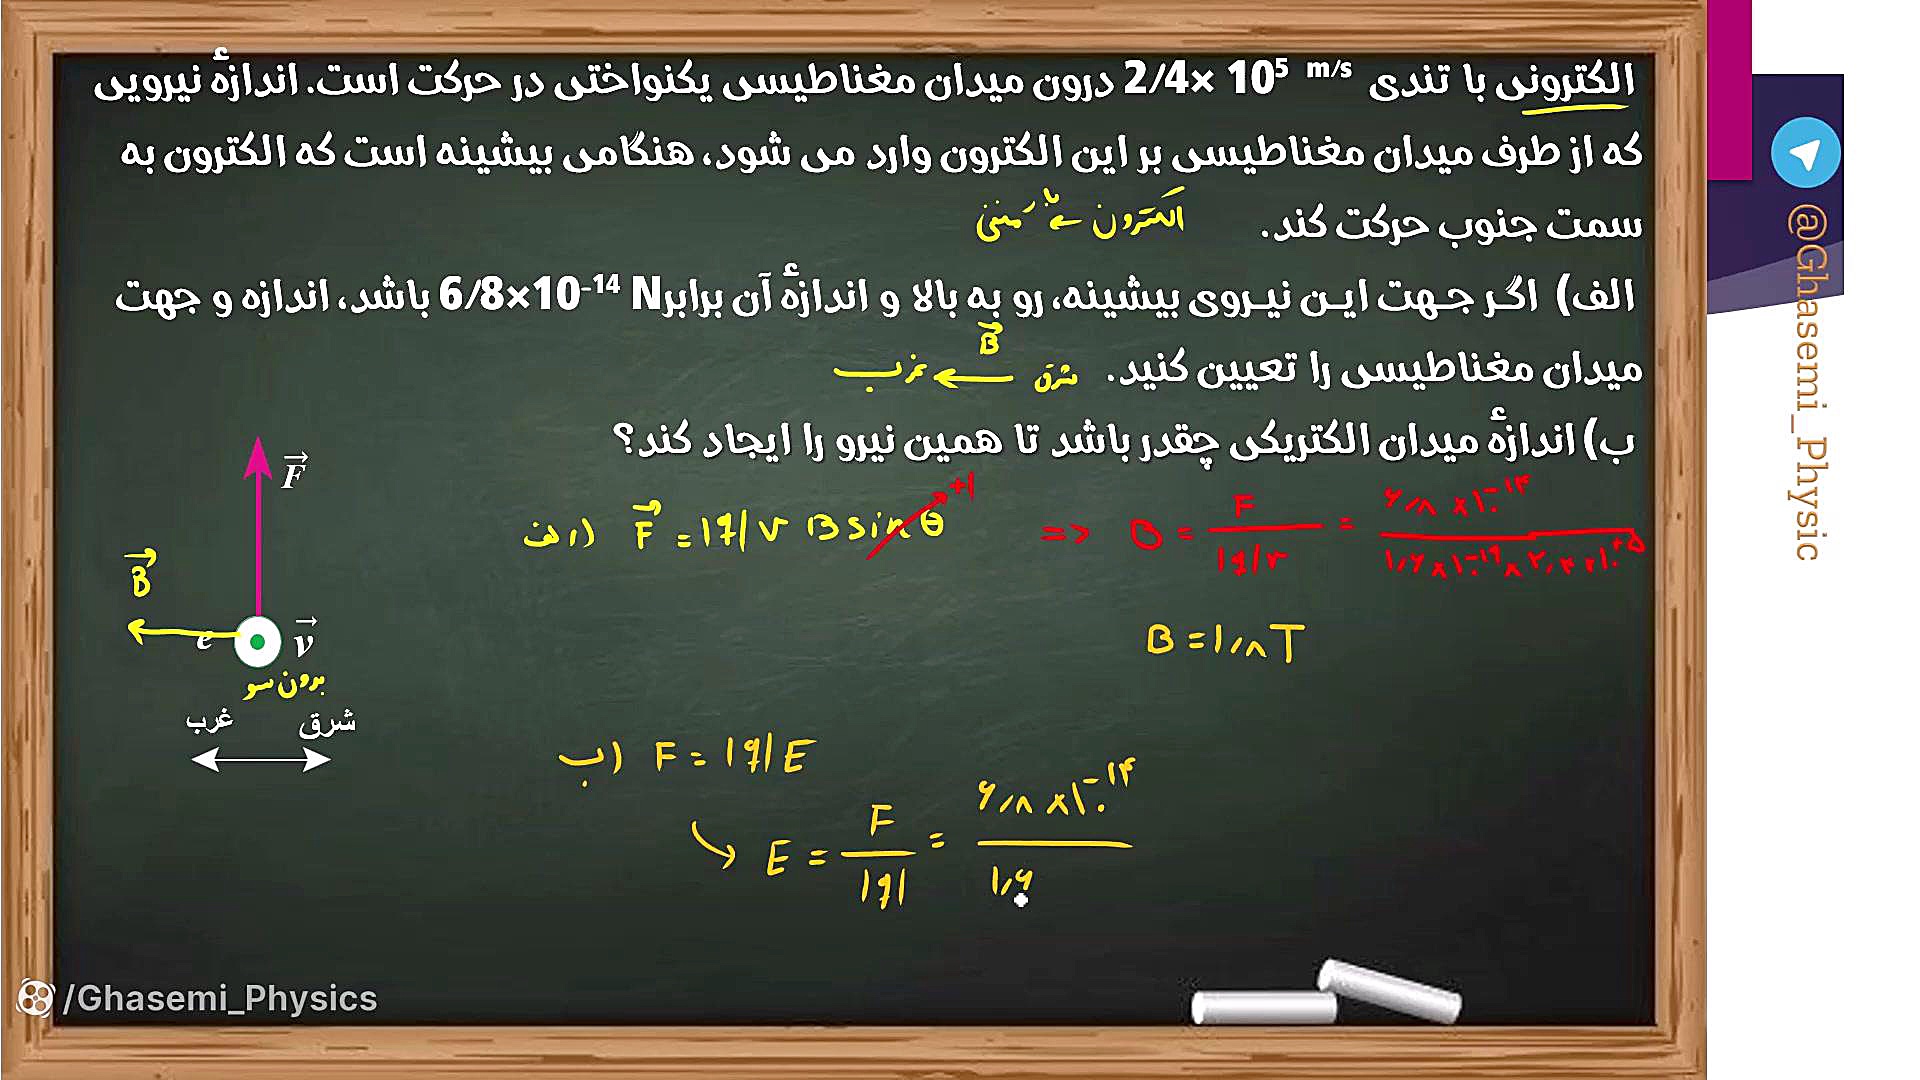 الکترونی با تندی 2/4× 10⁵ m/s درون میدان مغناطیسی یکنواختی در حرکت است. اندازهٔ نیرویی
که از طرف میدان مغناطیسی بر این الکترون وارد می شود، هنگامی بیشینه است که الکترون به
سمت جنوب حرکت کند.
الکترون ← بار منفی
الف) اگر جهت این نیروی بیشینه، رو به بالا و اندازهٔ آن برابر 6/8×10⁻¹⁴ N باشد، اندازه و جهت
میدان مغناطیسی را تعیین کنید.
B⃗
شرق ← غرب
ب) اندازهٔ میدان الکتریکی چقدر باشد تا همین نیرو را ایجاد کند؟
الف) F⃗ = |q| v B sin θ +1 => B = F / |q|v = ۶/۸ × ۱۰⁻¹⁴ / ۱/۶ × ۱۰⁻¹⁹ × ۲/۴ × ۱۰⁺⁵
B = ۱/۸ T
F⃗
B⃗
e
v⃗
برون سو
غرب شرق
ب) F = |q| E
E = F / |q| = ۶/۸ × ۱۰⁻¹⁴ / ۱/۶
/Ghasemi_Physics
@Ghasemi_Physic